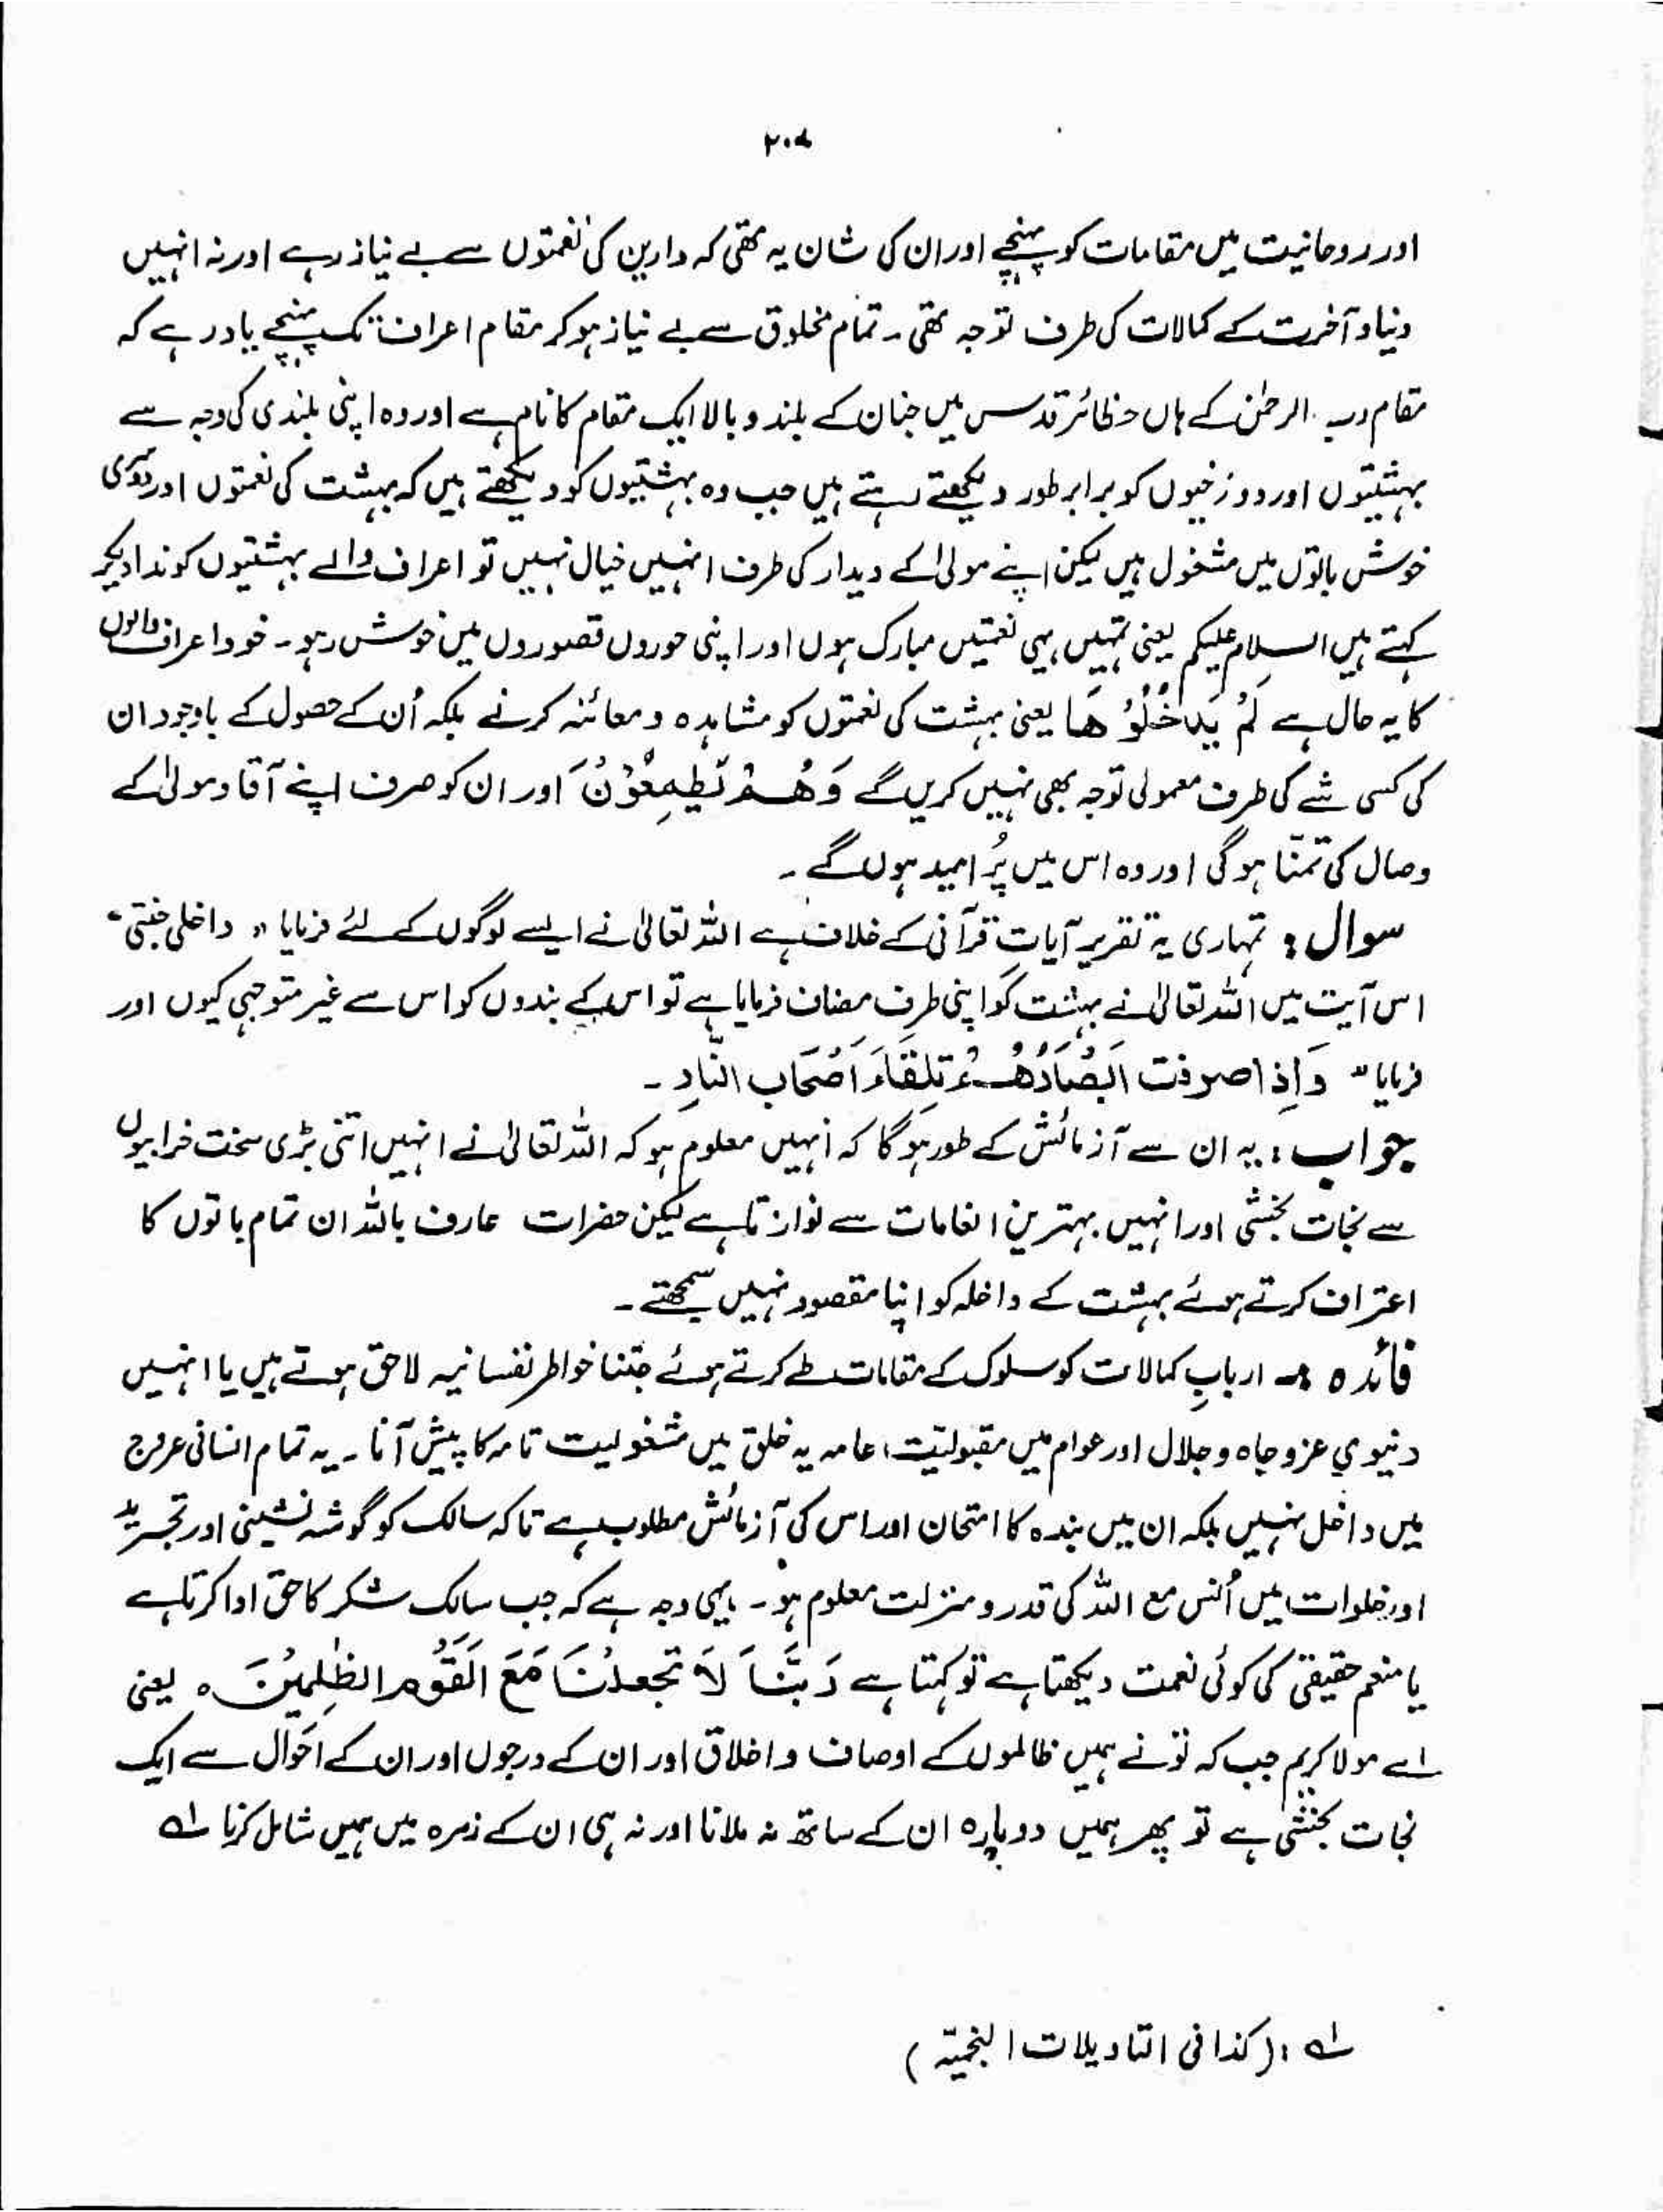 ۲۰۸
اور روحانیت میں مقامات کو پہنچے اور ان کی شان یہ تھی کہ دارین کی نعمتوں سے بے نیاز رہے اور نہ انہیں
دنیا و آخرت کے کمالات کی طرف توجہ تھی ۔ تمام مخلوق سے بے نیاز ہو کر مقام اعراف تک پہنچے یاد رہے کہ
مقام الرحمٰن کے ہاں حظائر قدس میں جنان کے بلند و بالا ایک مقام کا نام ہے اور وہ اپنی بلندی کی وجہ سے
بہشتیوں اور دوزخیوں کو برابر طور دیکھتے رہتے ہیں جب وہ بہشتیوں کو دیکھتے ہیں کہ بہشت کی نعمتوں اور دوسری
خوش باتوں میں مشغول ہیں لیکن اپنے مولیٰ کے دیدار کی طرف انہیں خیال نہیں تو اعراف والے بہشتیوں کو ندا دیکر
کہتے ہیں السلام علیکم یعنی تمہیں یہی نعمتیں مبارک ہوں اور اپنی حوروں قصوروں میں خوش رہو ۔ خود اعراف والوں
کا یہ حال ہے لَمْ يَدْخُلُوْهَا یعنی بہشت کی نعمتوں کو مشاہدہ و معائنہ کرنے بلکہ اُن کے حصول کے باوجود ان
کی کسی شے کی طرف معمولی توجہ بھی نہیں کریں گے وَهُمْ يَطْمَعُوْنَ اور ان کو صرف اپنے آقا و مولیٰ کے
وصال کی تمنّا ہو گی اور وہ اس میں پُر امید ہوں گے ۔
سوال : تمہاری یہ تقریر آیاتِ قرآنی کے خلاف ہے اللہ تعالیٰ نے ایسے لوگوں کے لئے فرمایا " داخلی جنتی "
اس آیت میں اللہ تعالیٰ نے بہشت کو اپنی طرف مضاف فرمایا ہے تو اس کے بندوں کو اس سے غیر متوجہی کیوں اور
فرمایا " وَاِذا صرفت اَبْصَارُهُمْ تِلْقَاءَ اَصْحَاب النَّارِ ۔
جواب : یہ ان سے آزمائش کے طور ہو گا کہ انہیں معلوم ہو کہ اللہ تعالیٰ نے انہیں اتنی بڑی سخت خرابیوں
سے نجات بخشی اور انہیں بہترین انعامات سے نواز تا ہے لیکن حضرات عارف باللہ ان تمام باتوں کا
اعتراف کرتے ہوئے بہشت کے داخلہ کو اپنا مقصود نہیں سمجھتے ۔
فائدہ :۔ اربابِ کمالات کو سلوک کے مقامات طے کرتے ہوئے جتنا خواطر نفسانیہ لاحق ہوتے ہیں یا انہیں
دنیوی عز و جاہ و جلال اور عوام میں مقبولیّت عامہ یہ خلق میں مشغولیت تامہ کا پیش آنا ۔ یہ تمام انسانی عروج
میں داخل نہیں بلکہ ان میں بندہ کا امتحان اور اس کی آزمائش مطلوب ہے تاکہ سالک کو گوشہ نشینی اور تجرید
اور خلوات میں اُنس مع اللہ کی قدر و منزلت معلوم ہو ۔ یہی وجہ ہے کہ جب سالک شکر کا حق ادا کرتا ہے
یا منعم حقیقی کی کوئی نعمت دیکھتا ہے تو کہتا ہے رَبَّنَا لَا تَجْعَلْنَا مَعَ الْقَوْمِ الظّٰلِمِيْنَ ہ یعنی
اے مولا کریم جب کہ تونے ہمیں ظالموں کے اوصاف و اخلاق اور ان کے درجوں اور ان کے احوال سے ایک
نجات بخشی ہے تو پھر ہمیں دوبارہ ان کے ساتھ نہ ملانا اور نہ ہی ان کے زمرہ میں ہمیں شامل کرنا لہ
لہ :( کذا فی التاویلات النجمیۃ )